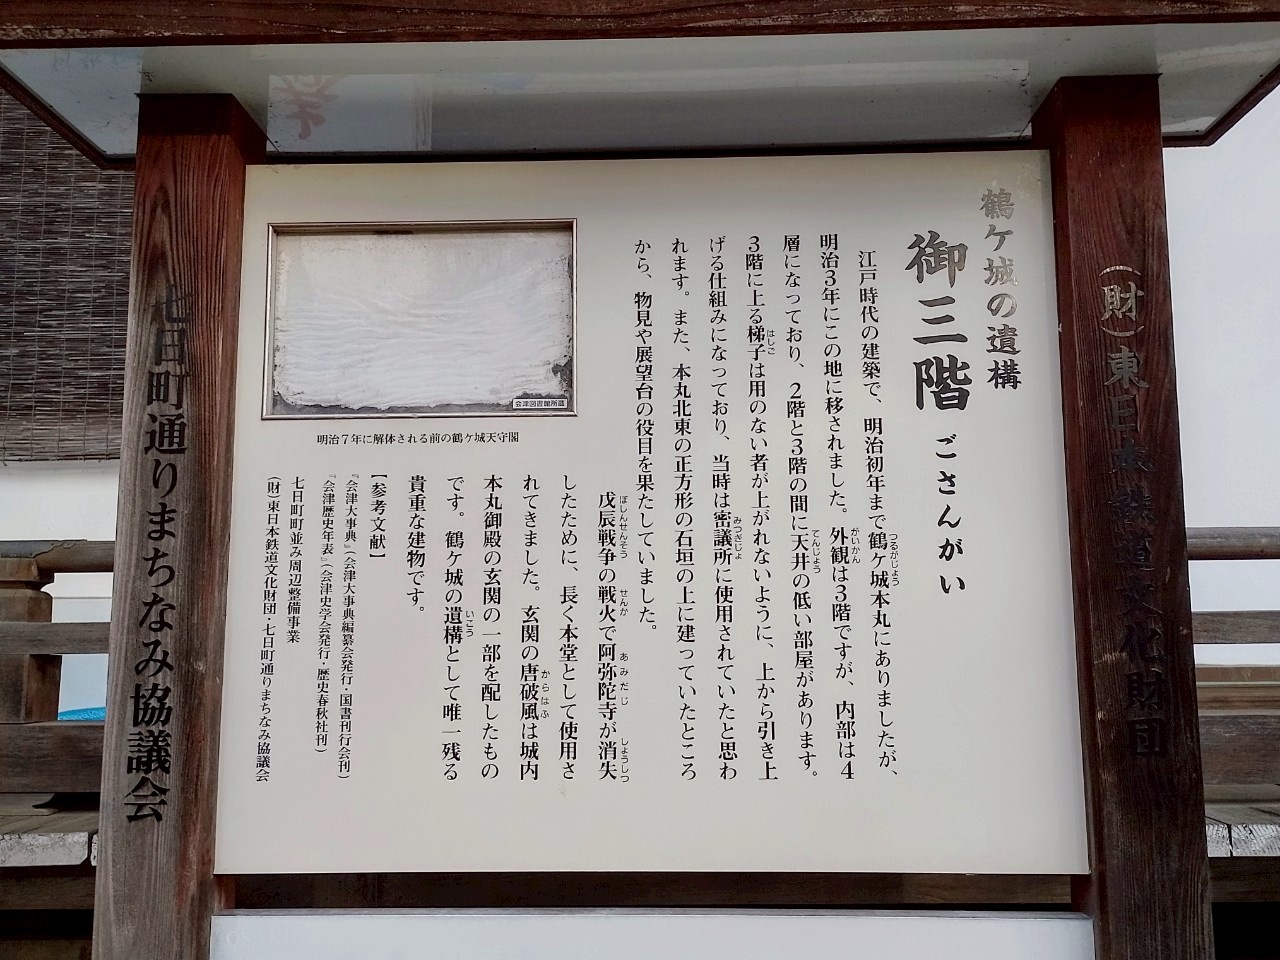 (財)東日本鉄道文化財団
鶴ケ城の遺構
御三階 ごさんがい
江戸時代の建築で、明治初年まで鶴ケ城本丸にありましたが、
つるがじょう
明治3年にこの地に移されました。外観は3階ですが、内部は4
がいかん
層になっており、2階と3階の間に天井の低い部屋があります。
てんじょう
3階に上る梯子は用のない者が上がれないように、上から引き上
はしご
げる仕組みになっており、当時は密議所に使用されていたと思わ
みつぎじょ
れます。また、本丸北東の正方形の石垣の上に建っていたところ
から、物見や展望台の役目を果たしていました。
戊辰戦争の戦火で阿弥陀寺が消失
ぼしんせんそう せんか あみだじ しょうしつ
したために、長く本堂として使用さ
れてきました。玄関の唐破風は城内
からはふ
本丸御殿の玄関の一部を配したもの
です。鶴ケ城の遺構として唯一残る
いこう
貴重な建物です。
【参考文献】
『会津大事典』(会津大事典編纂会発行・国書刊行会刊)
『会津歴史年表』(会津史学会発行・歴史春秋社刊)
七日町町並み周辺整備事業
(財)東日本鉄道文化財団・七日町通りまちなみ協議会
会津図書館所蔵
明治7年に解体される前の鶴ケ城天守閣
七日町通りまちなみ協議会